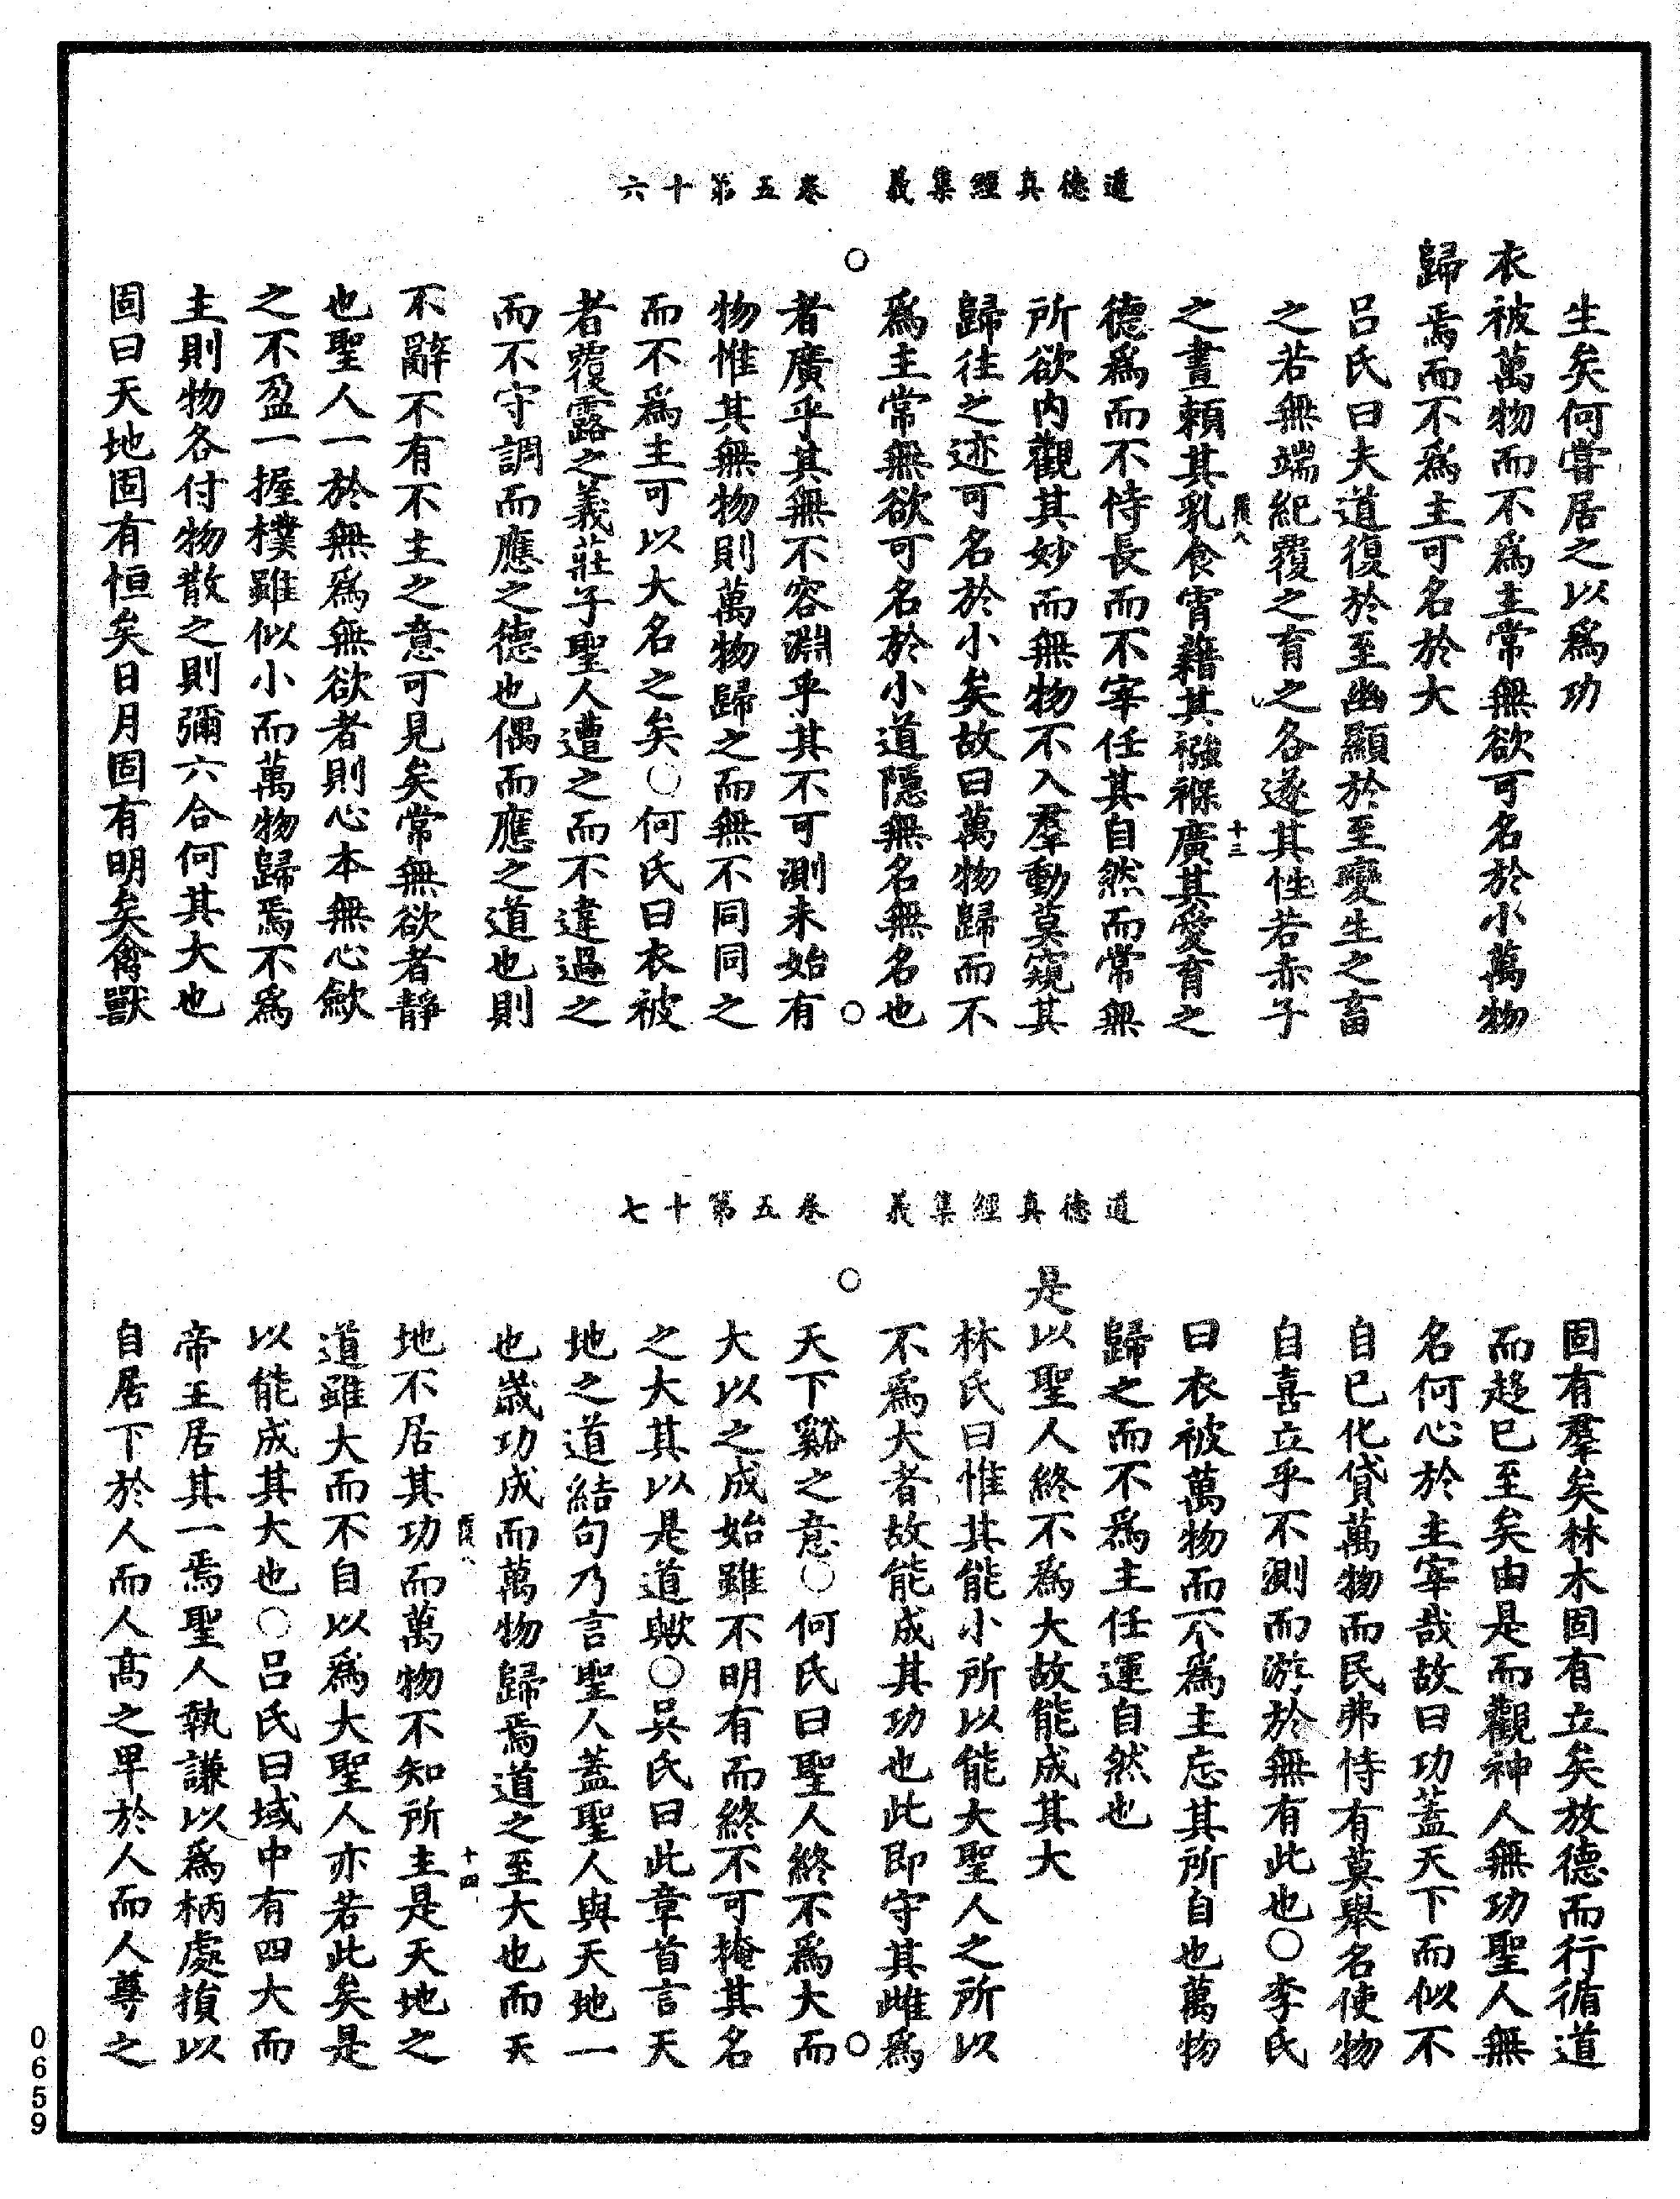 道德真經集義　卷五第十六
生矣何嘗居之以爲功
衣被萬物而不爲主常無欲可名於小萬物
歸焉而不爲主可名於大
呂氏曰夫道復於至幽顯於至變生之畜
之若無端紀覆之育之各遂其性若赤子
十三
之晝賴其乳食宵藉其襁褓廣其愛育之
德爲而不恃長而不宰任其自然而常無
所欲内觀其妙而無物不入羣動莫窺其
歸往之迹可名於小矣故曰萬物歸而不
爲主常無欲可名於小道隱無名無名也
者廣乎其無不容淵乎其不可測未始有
物惟其無物則萬物歸之而無不同同之
而不爲主可以大名之矣○何氏曰衣被
者覆露之義莊子聖人遭之而不違過之
而不守調而應之德也偶而應之道也則
不辭不有不主之意可見矣常無欲者靜
也聖人一於無爲無欲者則心本無心歛
之不盈一握樸雖似小而萬物歸焉不爲
主則物各付物散之則彌六合何其大也
固曰天地固有恒矣日月固有明矣禽獸
道德真經集義　卷五第十七
固有羣矣林木固有立矣放德而行循道
而趍已至矣由是而觀神人無功聖人無
名何心於主宰哉故曰功蓋天下而似不
自已化貸萬物而民弗恃有莫舉名使物
自喜立乎不測而游於無有此也○李氏
曰衣被萬物而不爲主忘其所自也萬物
歸之而不爲主任運自然也
是以聖人終不爲大故能成其大
林氏曰惟其能小所以能大聖人之所以
不爲大者故能成其功也此即守其雌爲
天下谿之意○何氏曰聖人終不爲大而
大以之成始雖不明有而終不可掩其名
之大其以是道歟○吳氏曰此章首言天
地之道結句乃言聖人蓋聖人與天地一
也歲功成而萬物歸焉道之至大也而天
十四
地不居其功而萬物不知所主是天地之
道雖大而不自以爲大聖人亦若此矣是
以能成其大也○呂氏曰域中有四大而
帝王居其一焉聖人執謙以爲柄處損以
自居下於人而人高之卑於人而人尊之
0659